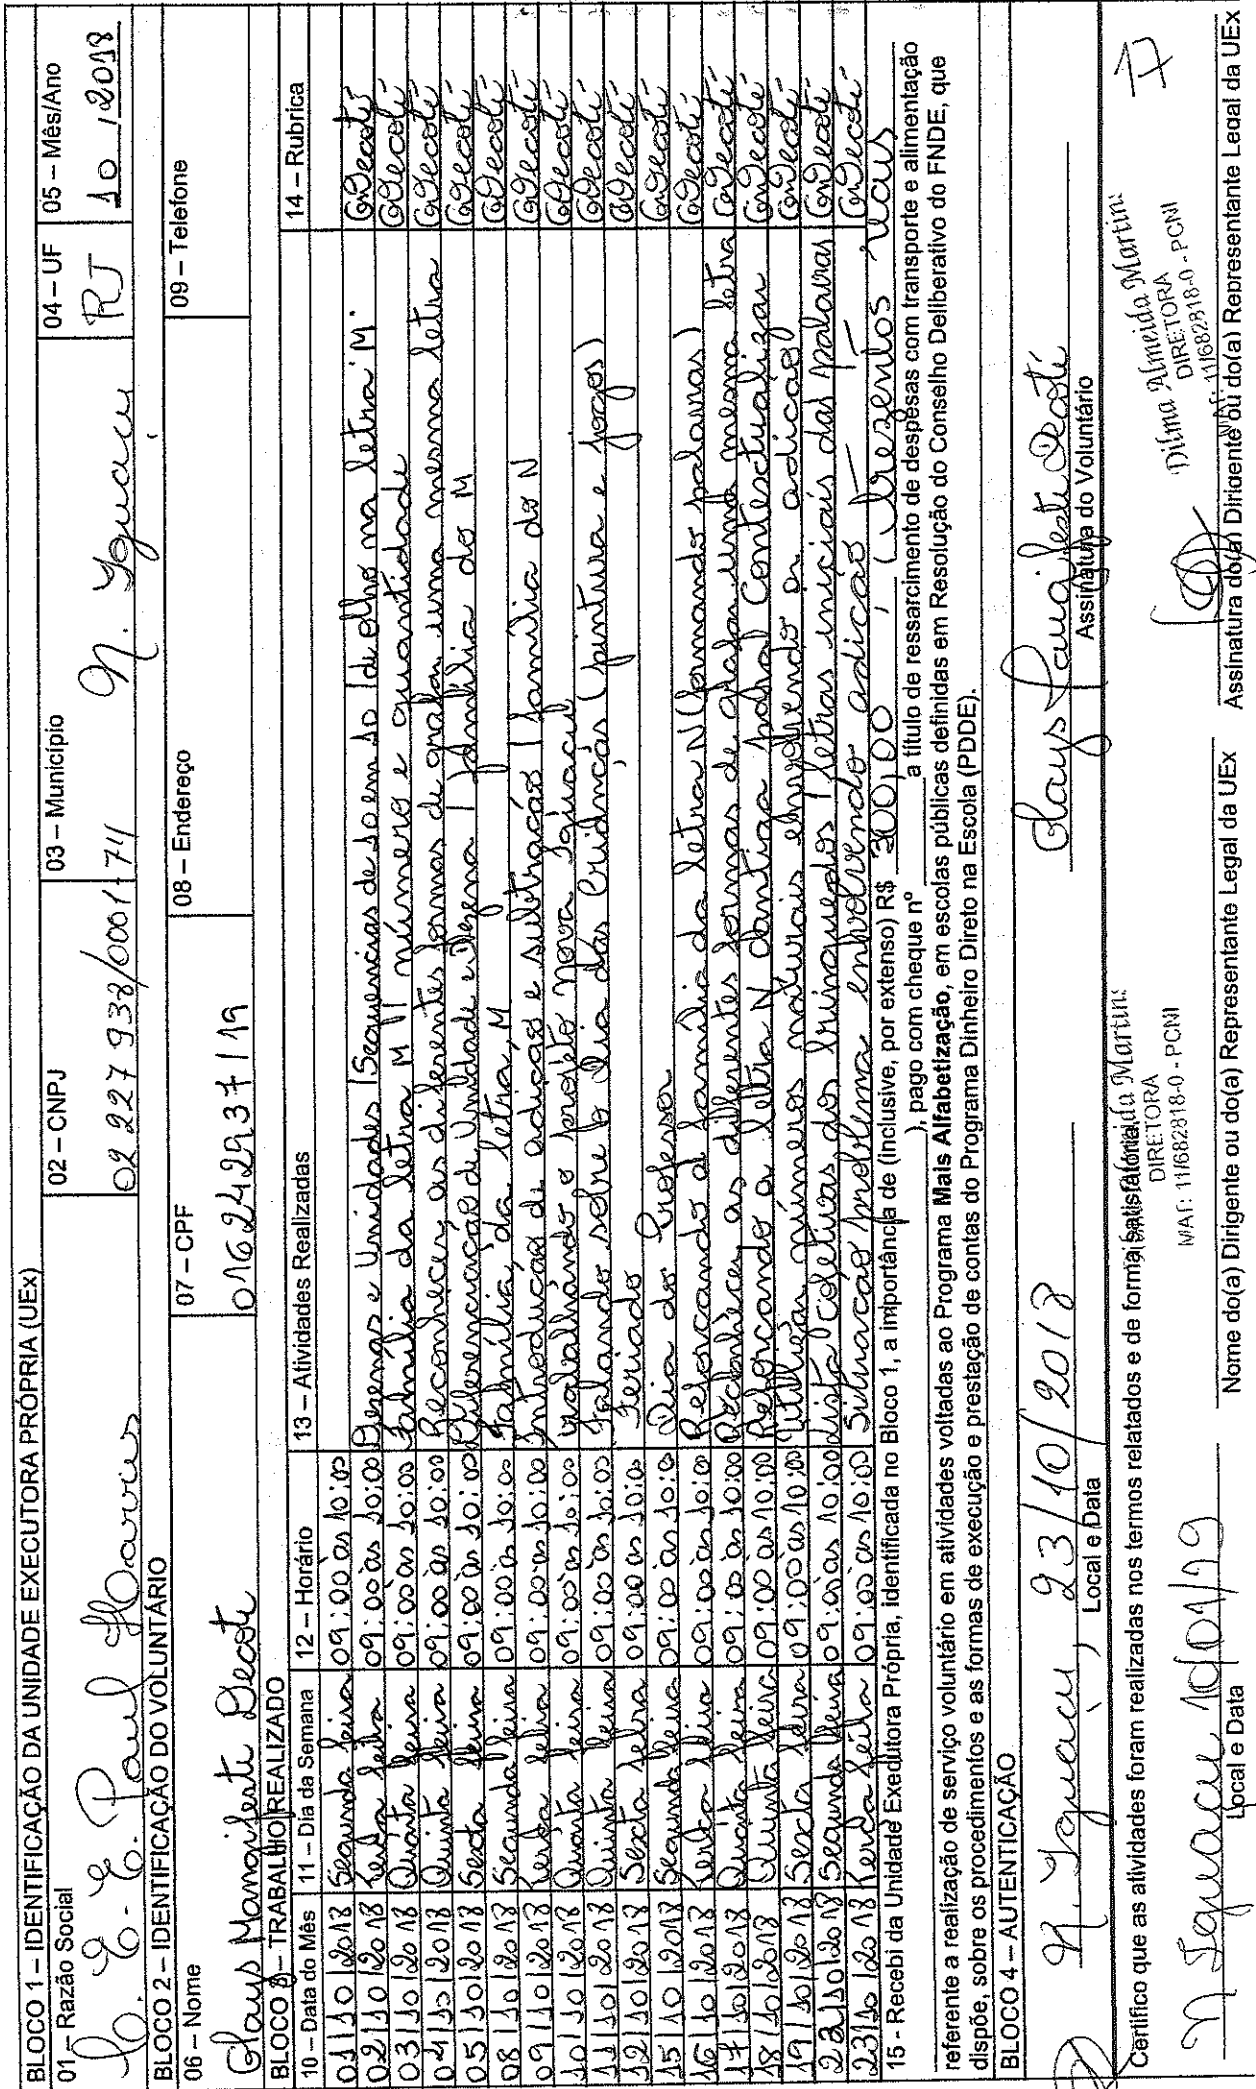 BLOCO 1 – IDENTIFICAÇÃO DA UNIDADE EXECUTORA PRÓPRIA (UEx)
01 – Razão Social 02 – CNPJ 03 – Município 04 – UF 05 – Mês/Ano
C. E. Paul Harris 02 227 938/0001-74 N. Iguacu RJ 10 / 2018
BLOCO 2 – IDENTIFICAÇÃO DO VOLUNTÁRIO
06 – Nome 07 – CPF 08 – Endereço 09 – Telefone
Glays Manifeste Decoté
BLOCO 3 – TRABALHO REALIZADO
10 – Data do Mês 11 – Dia da Semana 12 – Horário 13 – Atividades Realizadas 14 – Rubrica
01/10/2018 Segunda feira 09:00 às 10:00 Dezenas e Unidades / Sequências de 10 em 10 / de olho na letra M.
02/10/2018 Terça feira 09:00 às 10:00 Família da letra M // número e quantidade
03/10/2018 Quarta feira 09:00 às 10:00 Reconhecer as diferentes formas de grafar uma mesma letra
04/10/2018 Quinta feira 09:00 às 10:00 Diferenciação de Unidade e Dezena / família do M
05/10/2018 Sexta feira 09:00 às 10:00 Família da letra M
08/10/2018 Segunda feira 09:00 às 10:00 Introdução de adição e subtração / família do N
09/10/2018 Terça feira 09:00 às 10:00 trabalhando o projeto Nova Iguacu
10/10/2018 Quarta feira 09:00 às 10:00 Falando sobre o Dia das Crianças (pintura e jogos)
11/10/2018 Quinta feira 09:00 às 10:00 Feriado
12/10/2018 Sexta feira 09:00 às 10:00 Dia do Professor
15/10/2018 Segunda feira 09:00 às 10:00 Reforçando a família da letra N (formando palavras)
16/10/2018 Terça feira 09:00 às 10:00 Reconhecer as diferentes formas de grafar uma mesma letra
17/10/2018 Quarta feira 09:00 às 10:00 Reforçando a letra N cantiga para contextualizar
18/10/2018 Quinta feira 09:00 às 10:00 Utilizar números naturais envolvendo a adição
19/10/2018 Sexta feira 09:00 às 10:00 Lista coletivas dos brinquedos / letras iniciais das palavras
22/10/2018 Segunda feira 09:00 às 10:00 Situação problema envolvendo adição
23/10/2018 Terça feira 09:00 às 10:00
15 - Recebi da Unidade Executora Própria, identificada no Bloco 1, a importância de (inclusive, por extenso) R$ 300,00 (trezentos reais
), pago com cheque nº a título de ressarcimento de despesas com transporte e alimentação
referente a realização de serviço voluntário em atividades voltadas ao Programa Mais Alfabetização, em escolas públicas definidas em Resolução do Conselho Deliberativo do FNDE, que
dispõe, sobre os procedimentos e as formas de execução e prestação de contas do Programa Dinheiro Direto na Escola (PDDE).
BLOCO 4 – AUTENTICAÇÃO
N. Iguacu, 23/10/2018 Glays Manifeste Decoté
Local e Data Assinatura do Voluntário
Certifico que as atividades foram realizadas nos termos relatados e de forma satisfatória.
Almeida Martins
DIRETORA
MAT: 11/682818-0 - PCNI
Dilma Almeida Martins
DIRETORA
11/682818-0 - PCNI
N Iguacu
Local e Data Nome do(a) Dirigente ou do(a) Representante Legal da UEx Assinatura do(a) Dirigente ou do(a) Representante Legal da UEx